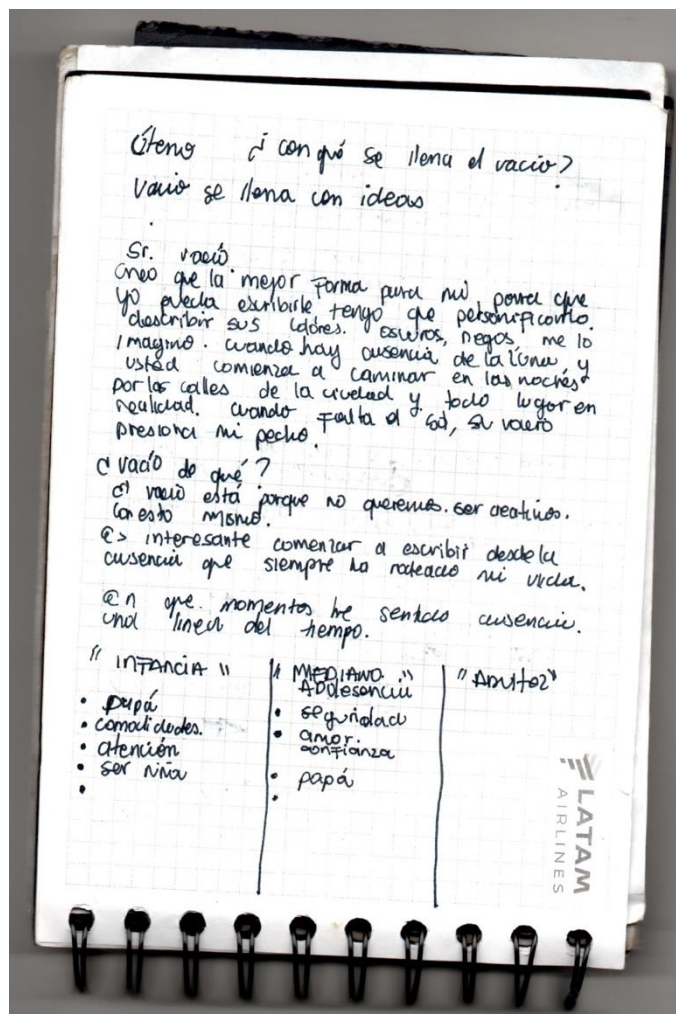 Útero ¿con qué se llena el vacio?
Vacio se llena con ideas
Sr. vacío
Creo que la mejor Forma para mi para que
yo pueda escribirle tengo que personificarlo.
describir sus colores. oscuros, negos, me lo
imagino. cuando hay ausencia de la lúna y
usted comienza a caminar en las noches
por las calles de la ciudad y todo lugar en
realidad. cuando Falta el sol, su vacio
presiona mi pecho.
¿vacío de qué?
el vacio está porque no queremos ser creativos.
Con esto mismo.
Es interesante comenzar a escribir desde la
ausencia que siempre ha rodeado mi vida.
En que momentos he sentido ausencia.
una linea del tiempo.
"INFANCIA"
• papá
• comodidades.
• atención
• ser niña
•
"MEDIANO"
ADolesencia
• seguridad
• amor.
confianza
• papá
•
"ADultez"
LATAM
AIRLINES